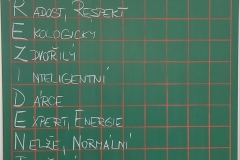 RADOST, RESPEKT
EKOLOGICKY
ZDVOŘILÝ
INTELIGENTNÍ
DÁRCE
EXPERT, ENERGIE
NELŽE, NORMÁLNÍ